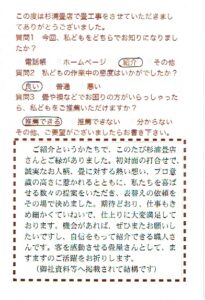 この度は杉浦畳店で畳工事をさせていただきまし
てありがとうございました。
質問1 今回、私どもをどちらでお知りになりまし
たか？
電話帳 ホームページ 紹介 その他
質問2 私どもの作業中の態度はいかがでしたか？
良い 普通 悪い
質問3 畳や襖などでお困りの方がいらっしゃった
ら、私どもをご推薦いただけますか？
推薦できる 推薦できない 分からない
その他、ご要望がございましたらお書き下さい。
ご紹介というかたちで、このたび杉浦畳店
さんとご縁がありました。初対面の打合せで、
誠実なお人柄、畳に対する熱い想い、プロ意
識の高さに惹かれるとともに、私たちを喜ば
せる数々の提案をいただき、表替えの依頼を
その場で決めました。期待どおり、仕事もき
め細かくていねいで、仕上りに大変満足して
おります。機会があれば、ぜひまたお願いし
たいですし、自信をもって紹介できる職人さ
んです。客を感動させる畳屋さんとして、ま
すますのご活躍をお祈りします。
（御社資料等へ掲載されて結構です）